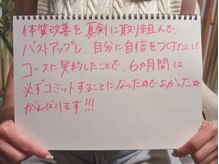 体質改善を真剣に取り組んで、
バストアップし、自分に自信をつけたい!
コースに契約したことで、6か月間は
必ずコミットすることになったのでよかった
がんばります!!!